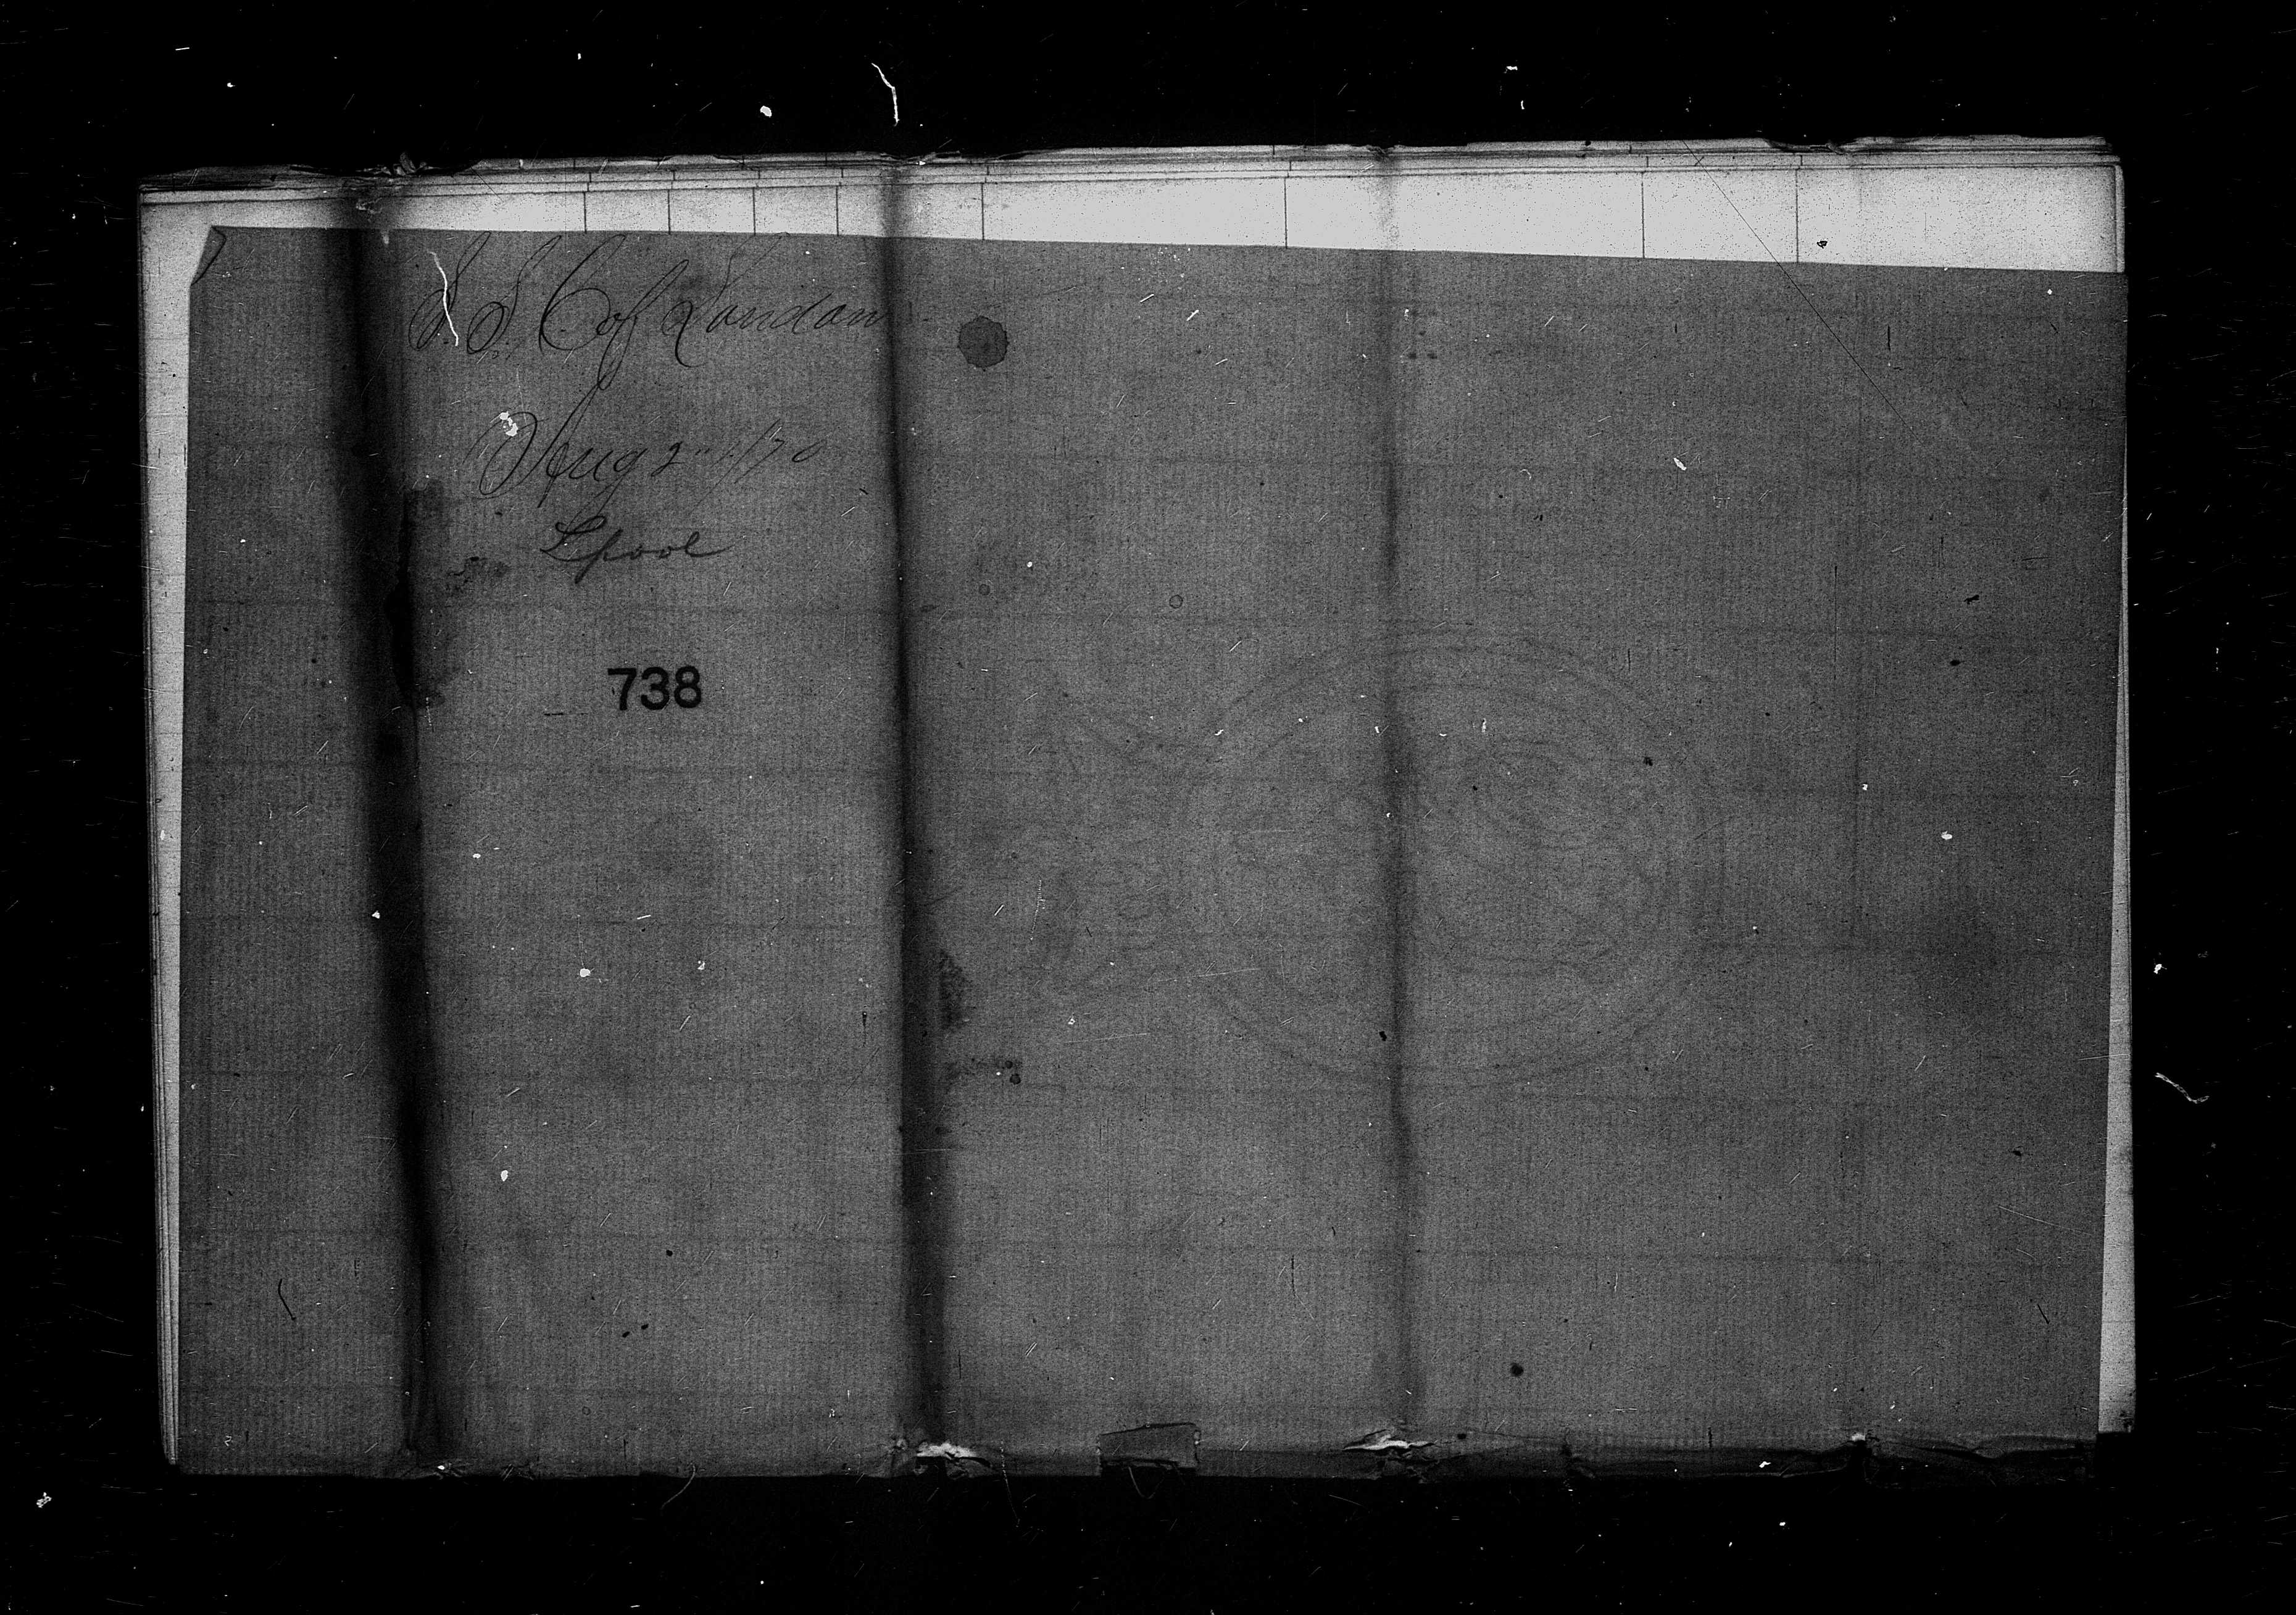 S. S. C of London
Aug 2" /70
Lpool
738